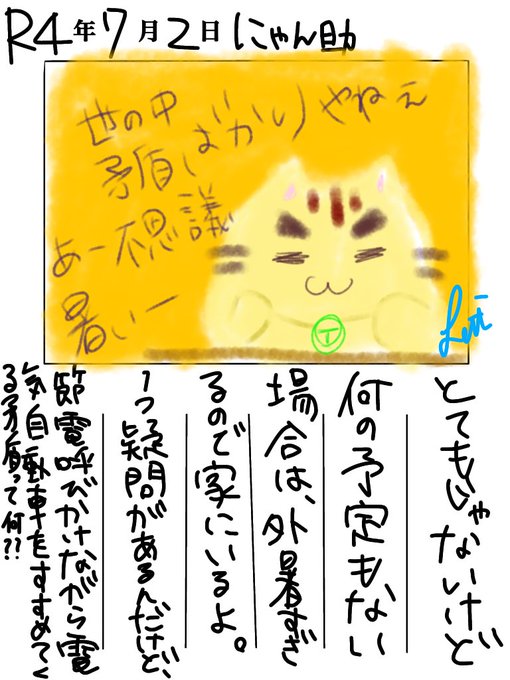 R4年7月2日にゃん助
世の中
矛盾ばかりやねぇ
あー不思議
暑いー
T
とてもじゃないけど
何の予定もない
場合は、外暑すぎ
るので家にいるよ。
1つ疑問があるんだけど、
節電呼びかけながら電
気自動車をすすめてく
る矛盾って何??